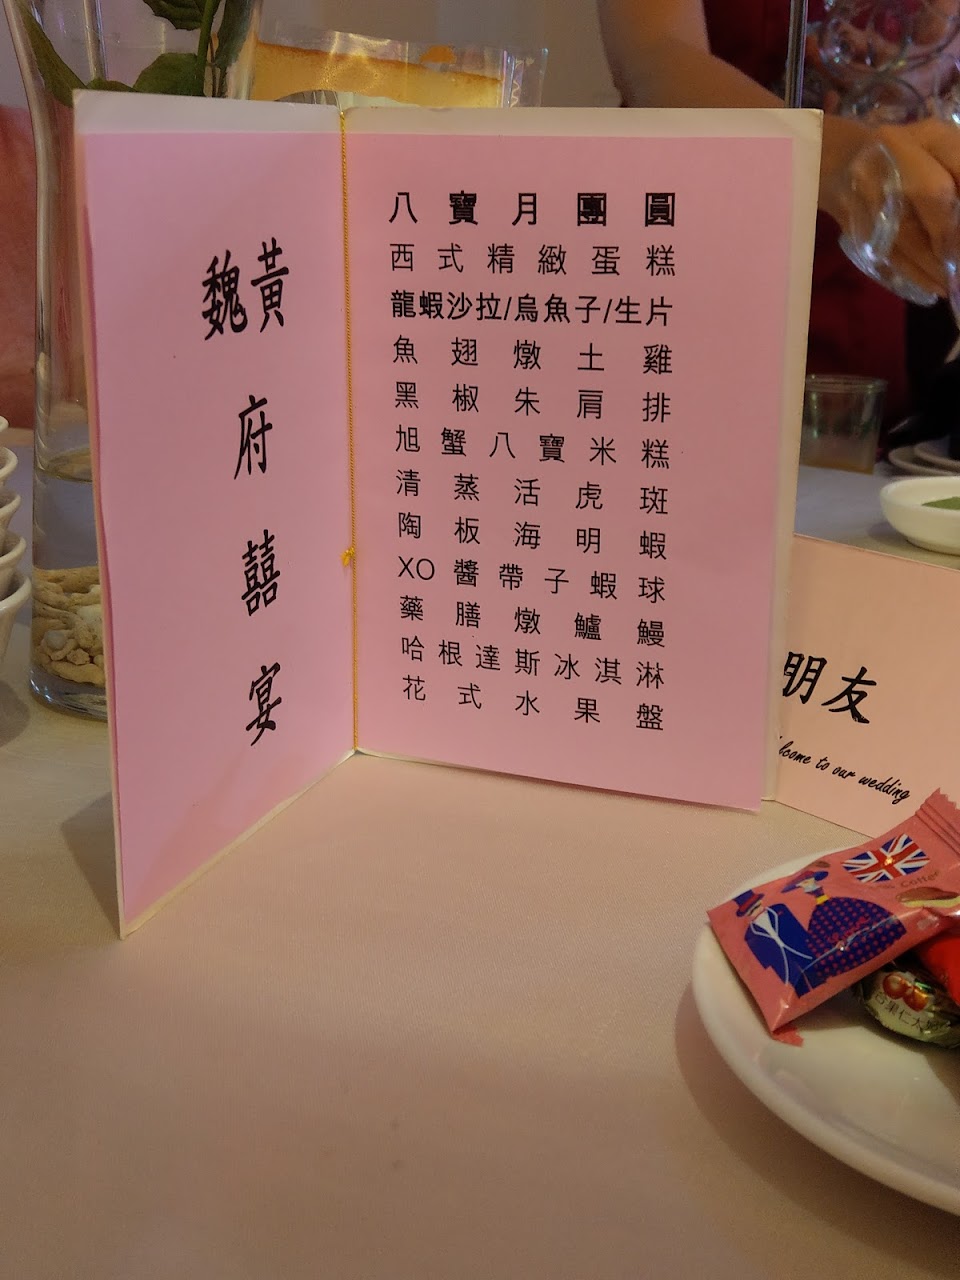 魏黃府囍宴
八寶月團圓
西式精緻蛋糕
龍蝦沙拉/烏魚子/生片
魚翅燉土雞
黑椒朱肩排
旭蟹八寶米糕
清蒸活虎斑
陶板海明蝦
XO醬帶子蝦球
藥膳燉鱸鰻
哈根達斯冰淇淋
花式水果盤
朋友
to our wedding